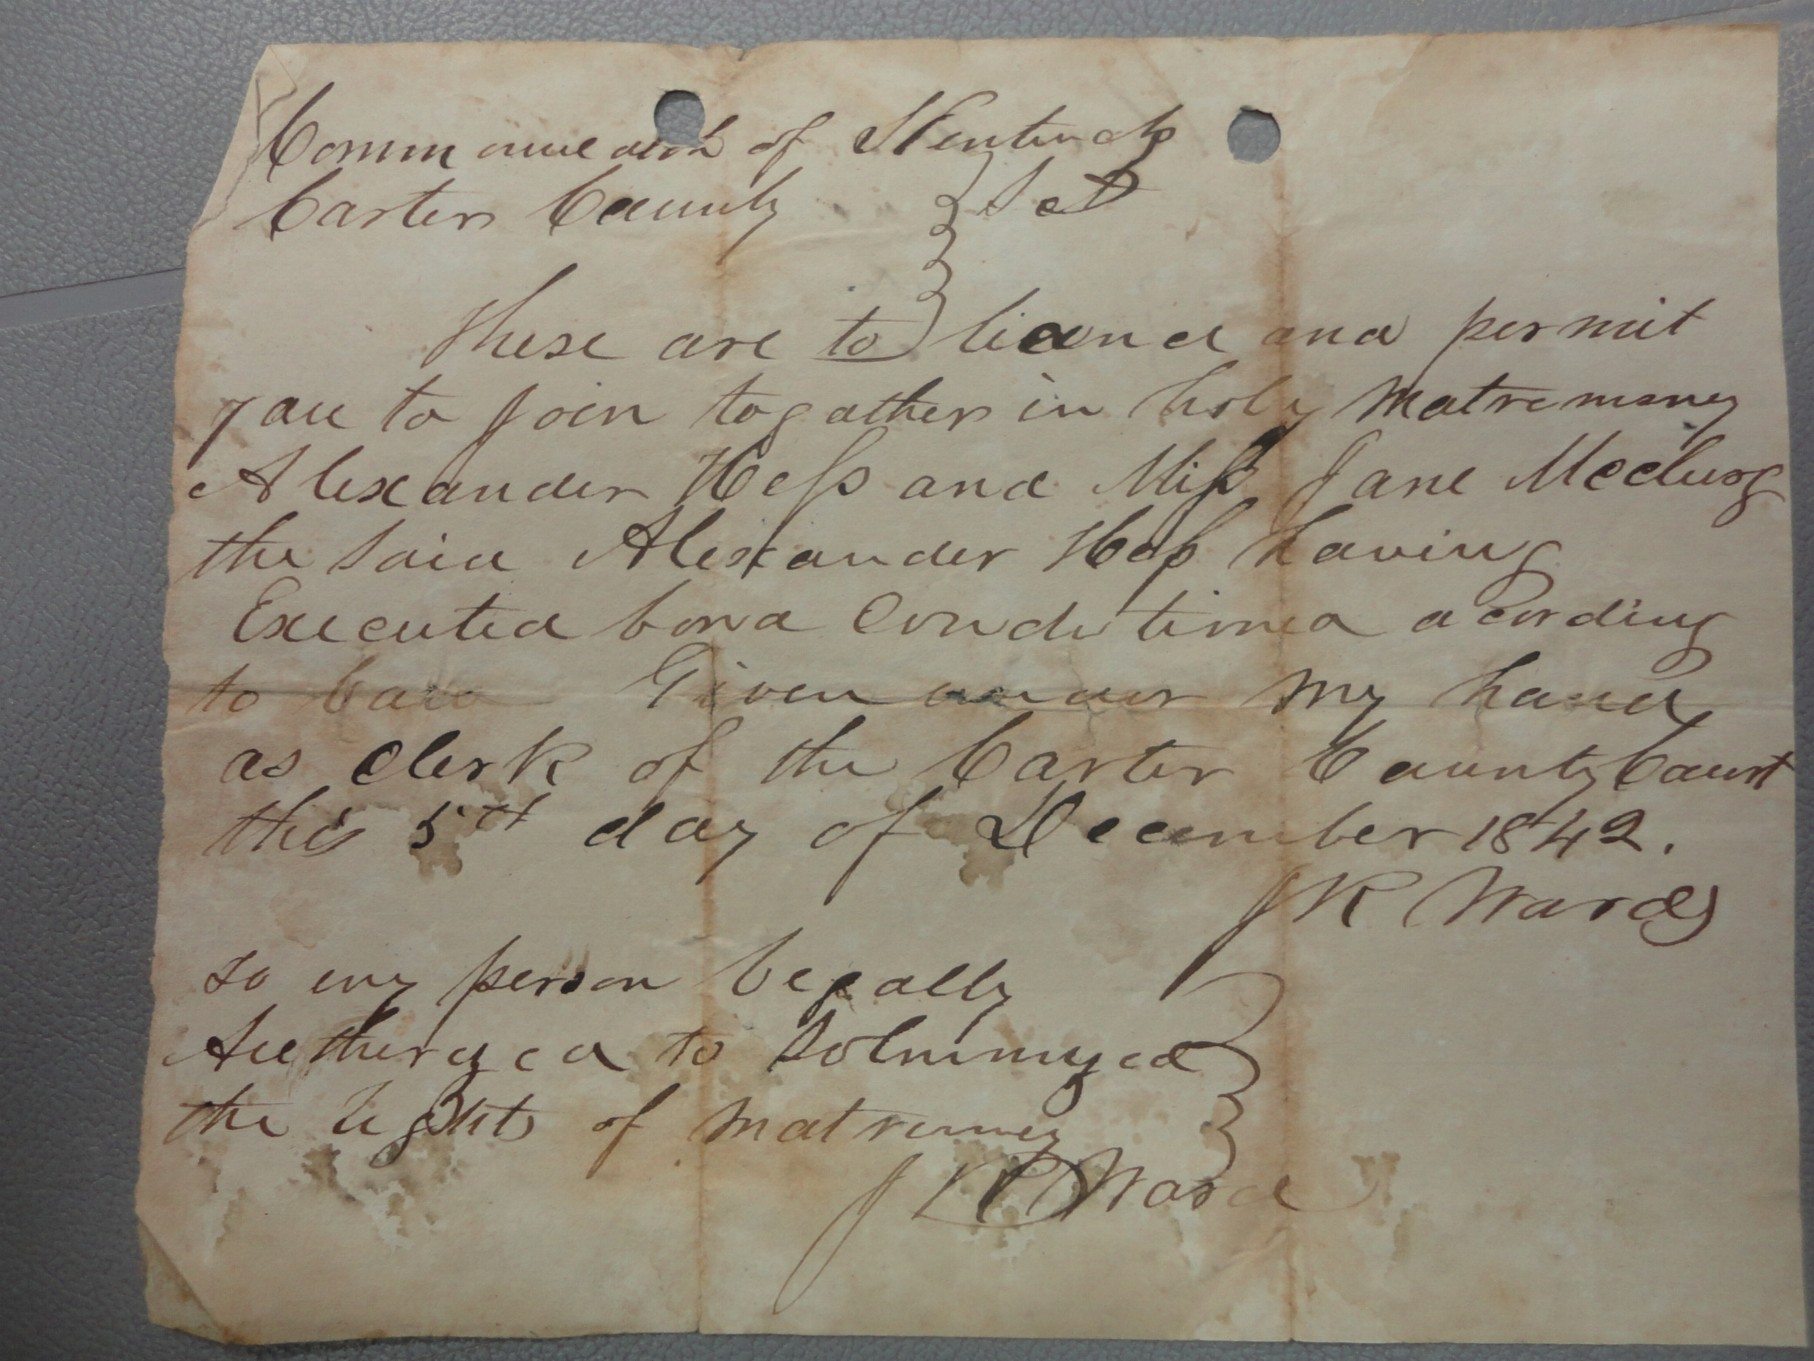 Commonwealth of Kentucky
Carter County } Sct
These are to licence and permit
you to Join togather in holy Matremony
Alexander Hess and Miss Jane Mcclurg
the said Alexander Hess having
Executed bond Conditioned acording
to Law Given under my hand
as Clerk of the Carter County Court
this 5th day of December 1842.
J R Ward
to eny person Legally
Autherized to Solemnyzed
the rights of Matremony
J R Ward